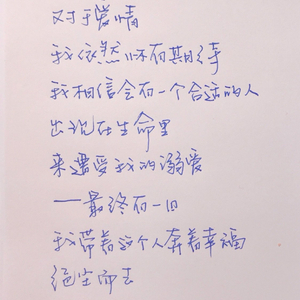 对于爱情
我依然怀有期待
我相信会有一个合适的人
出现在生命里
来遭受我的溺爱
——最终有一日
我带着这个人奔着幸福
绝尘而去